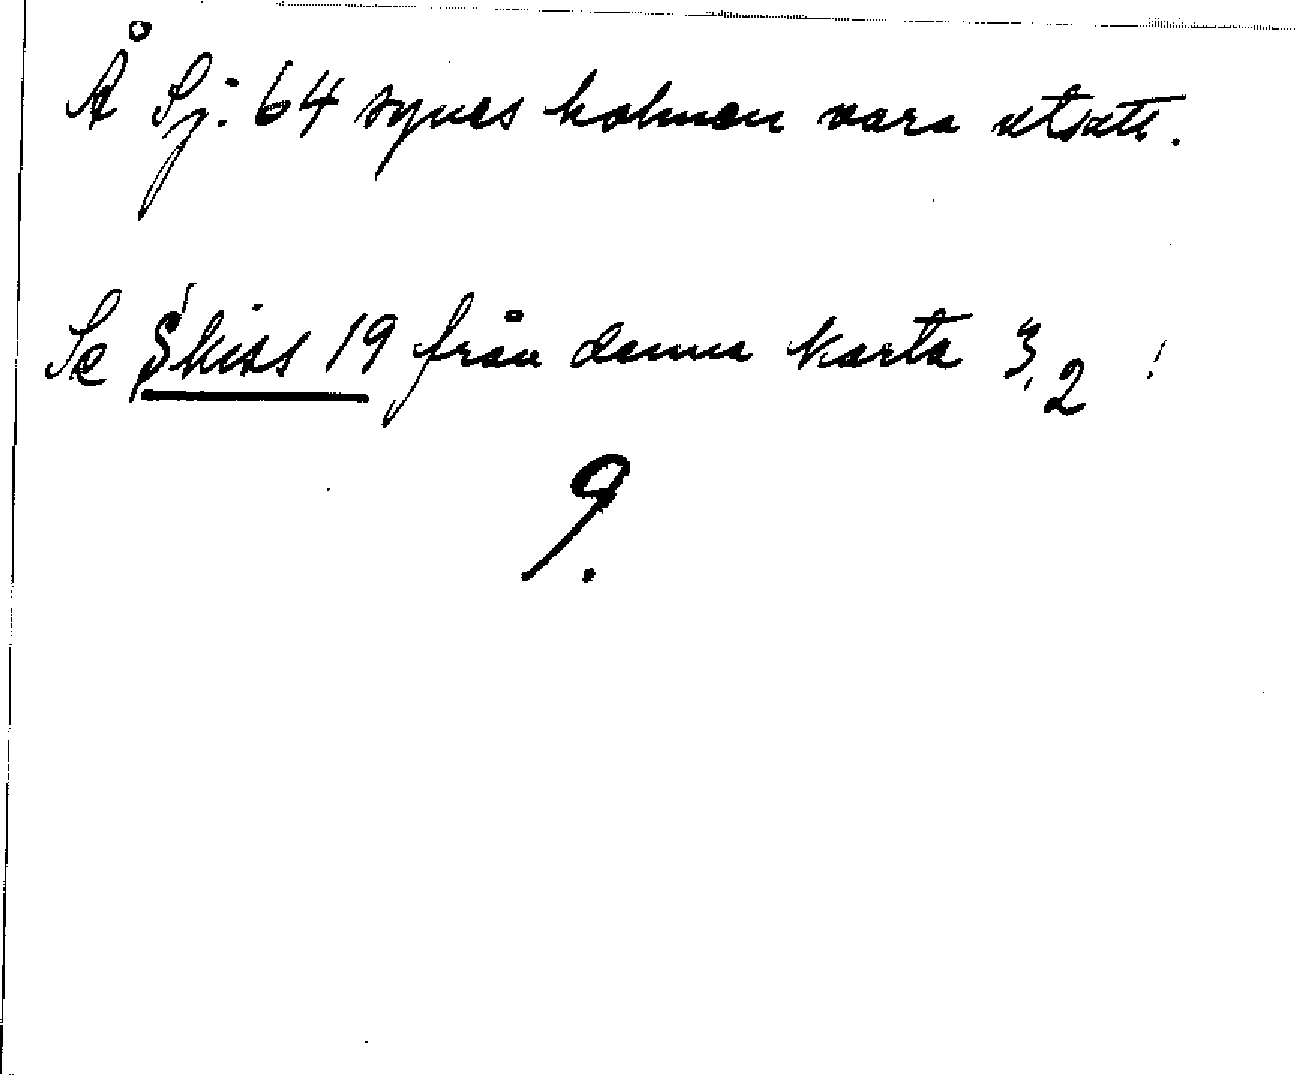 Å Sj: 64 synes holmen vara utsatt.
Se Skiss 19 från denna karta 3,2 !
9.